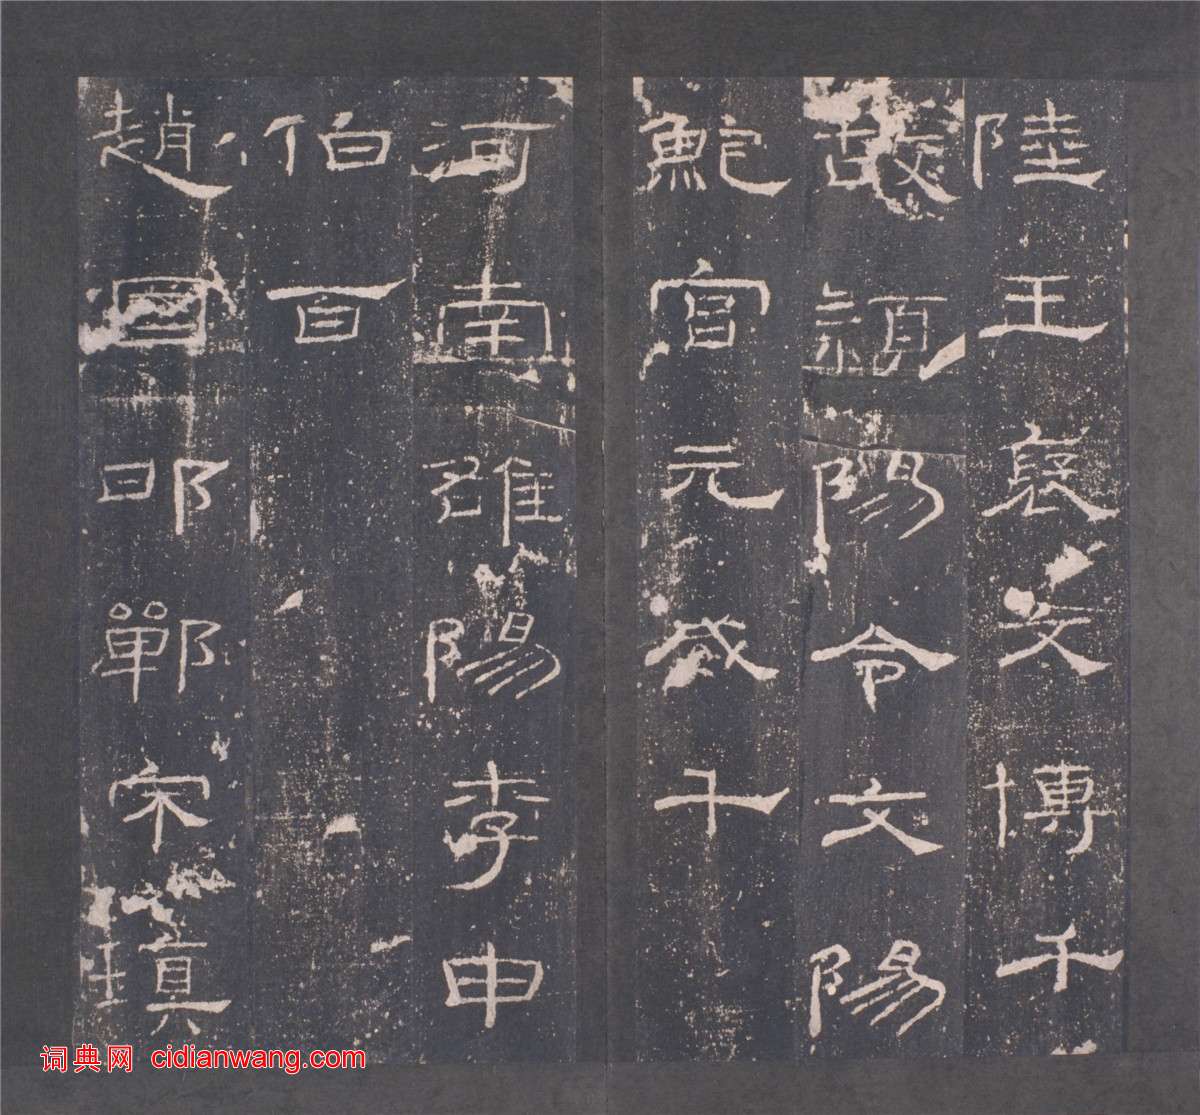 陸王褒文博千
故穎陽令文陽
鮑宮元威千
河南雒陽李申
伯百
趙國邯鄲宋瑱
词典网 cidianwang.com